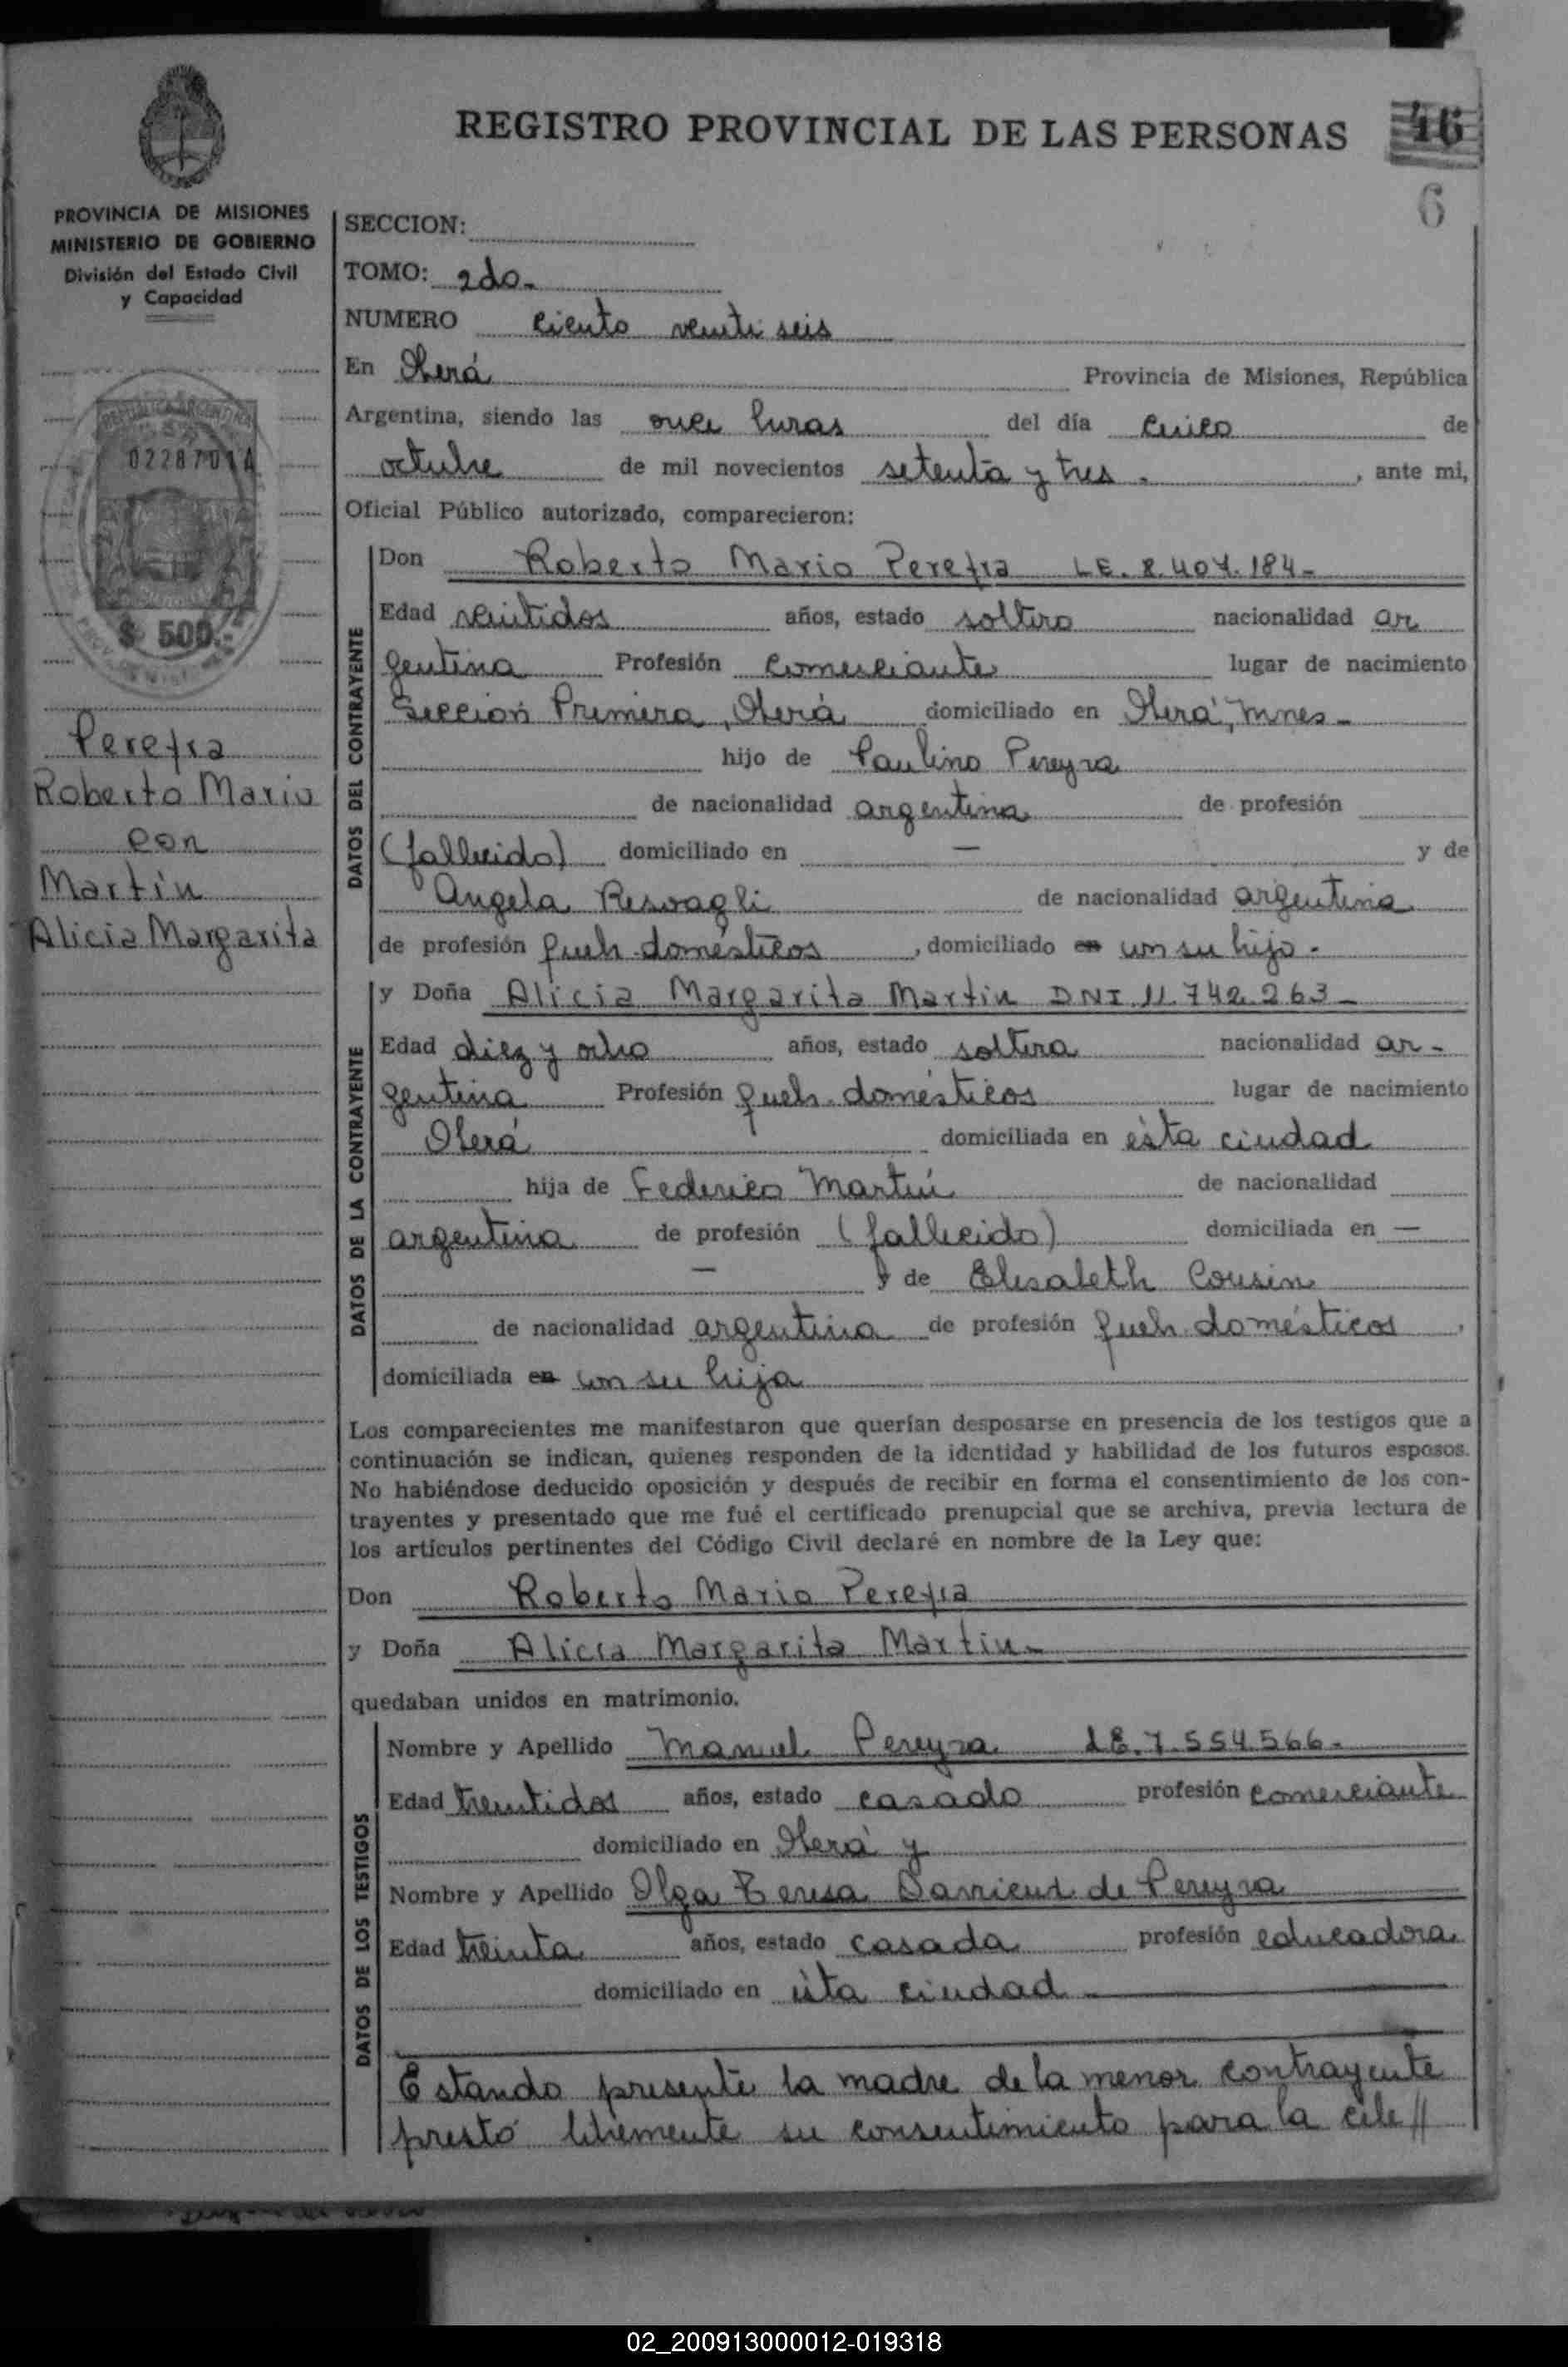 REGISTRO PROVINCIAL DE LAS PERSONAS
46
6
PROVINCIA DE MISIONES
MINISTERIO DE GOBIERNO
División del Estado Civil
y Capacidad
SECCION:
TOMO: 2do.
NUMERO ciento veinti seis
En Oberá Provincia de Misiones, República
Argentina, siendo las once horas del día cinco de
octubre de mil novecientos setenta y tres. , ante mi,
Oficial Público autorizado, comparecieron:
REPUBLICA ARGENTINA
02287014
$ 500.-
Pereyra
Roberto Mario
con
Martin
Alicia Margarita
DATOS DEL CONTRAYENTE
Don Roberto Mario Pereyra LE. 8.404.184-
Edad veintidos años, estado soltero nacionalidad ar
gentina Profesión comerciante lugar de nacimiento
Sección Primera, Oberá domiciliado en Oberá, Mnes-
hijo de Paulino Pereyra
de nacionalidad argentina de profesión
(fallecido) domiciliado en — y de
Angela de nacionalidad argentina
de profesión queh. domésticos , domiciliado en con su hijo.
DATOS DE LA CONTRAYENTE
y Doña Alicia Margarita Martin DNI 11.742.263-
Edad diez y ocho años, estado soltera nacionalidad ar-
gentina Profesión queh. domésticos lugar de nacimiento
Oberá domiciliada en ésta ciudad
hija de Federico Martin de nacionalidad
argentina de profesión (fallecido) domiciliada en —
— y de Elisabeth Cousin
de nacionalidad argentina de profesión queh. domésticos ,
domiciliada en con su hija
Los comparecientes me manifestaron que querían desposarse en presencia de los testigos que a
continuación se indican, quienes responden de la identidad y habilidad de los futuros esposos.
No habiéndose deducido oposición y después de recibir en forma el consentimiento de los con-
trayentes y presentado que me fué el certificado prenupcial que se archiva, previa lectura de
los artículos pertinentes del Código Civil declaré en nombre de la Ley que:
Don Roberto Mario Pereyra
y Doña Alicia Margarita Martin-
quedaban unidos en matrimonio.
DATOS DE LOS TESTIGOS
Nombre y Apellido Manuel Pereyra LE. 7.554.566-
Edad treintidos años, estado casado profesión comerciante
domiciliado en Oberá y
Nombre y Apellido Olga Teresa de Pereyra
Edad treinta años, estado casada profesión educadora
domiciliado en ésta ciudad
Estando presente la madre de la menor contrayente
prestó libremente su consentimiento para la cele//
02_200913000012-019318